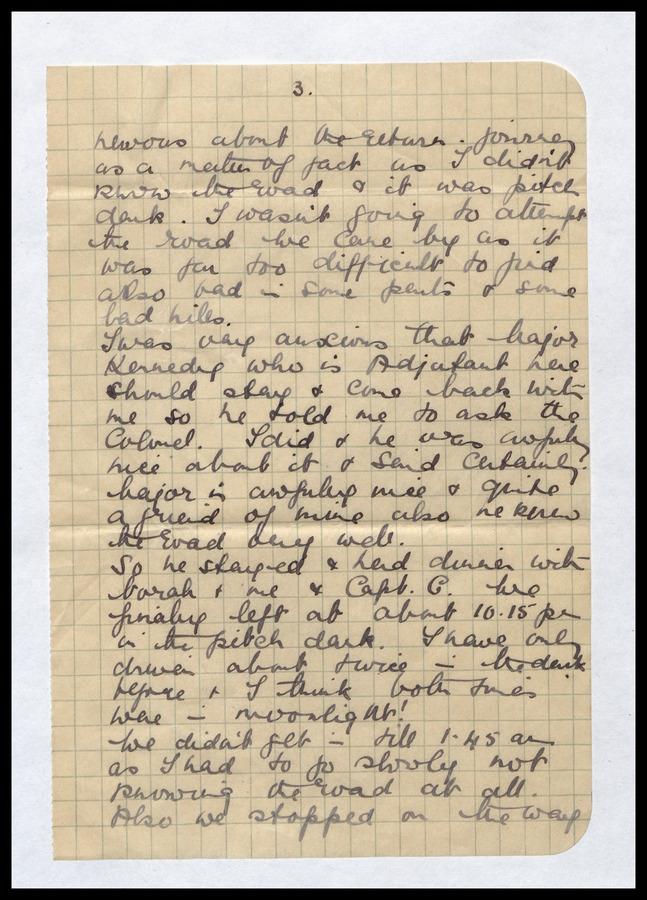 3.
nervous about the return journey
as a matter of fact as I didn't
know the road & it was pitch
dark. I wasn't going to attempt
the road we came by as it
was far too difficult to find
also bad in some parts & some
bad hills.
I was very anxious that Major
Kennedy who is Adjutant here
should stay & come back with
me so he told me to ask the
Colonel. I did & he was awfully
nice about it & said certainly.
Major is awfully nice & quite
a friend of mine also he knew
the road very well.
So he stayed & had dinner with
Norah & me & Capt. C. We
finally left at about 10.15 pm
in the pitch dark. I have only
driven about twice in the dark
before & I think both times
were in moonlight!
We didn't get in till 1.45 am
as I had to go slowly not
knowing the road at all.
Also we stopped on the way